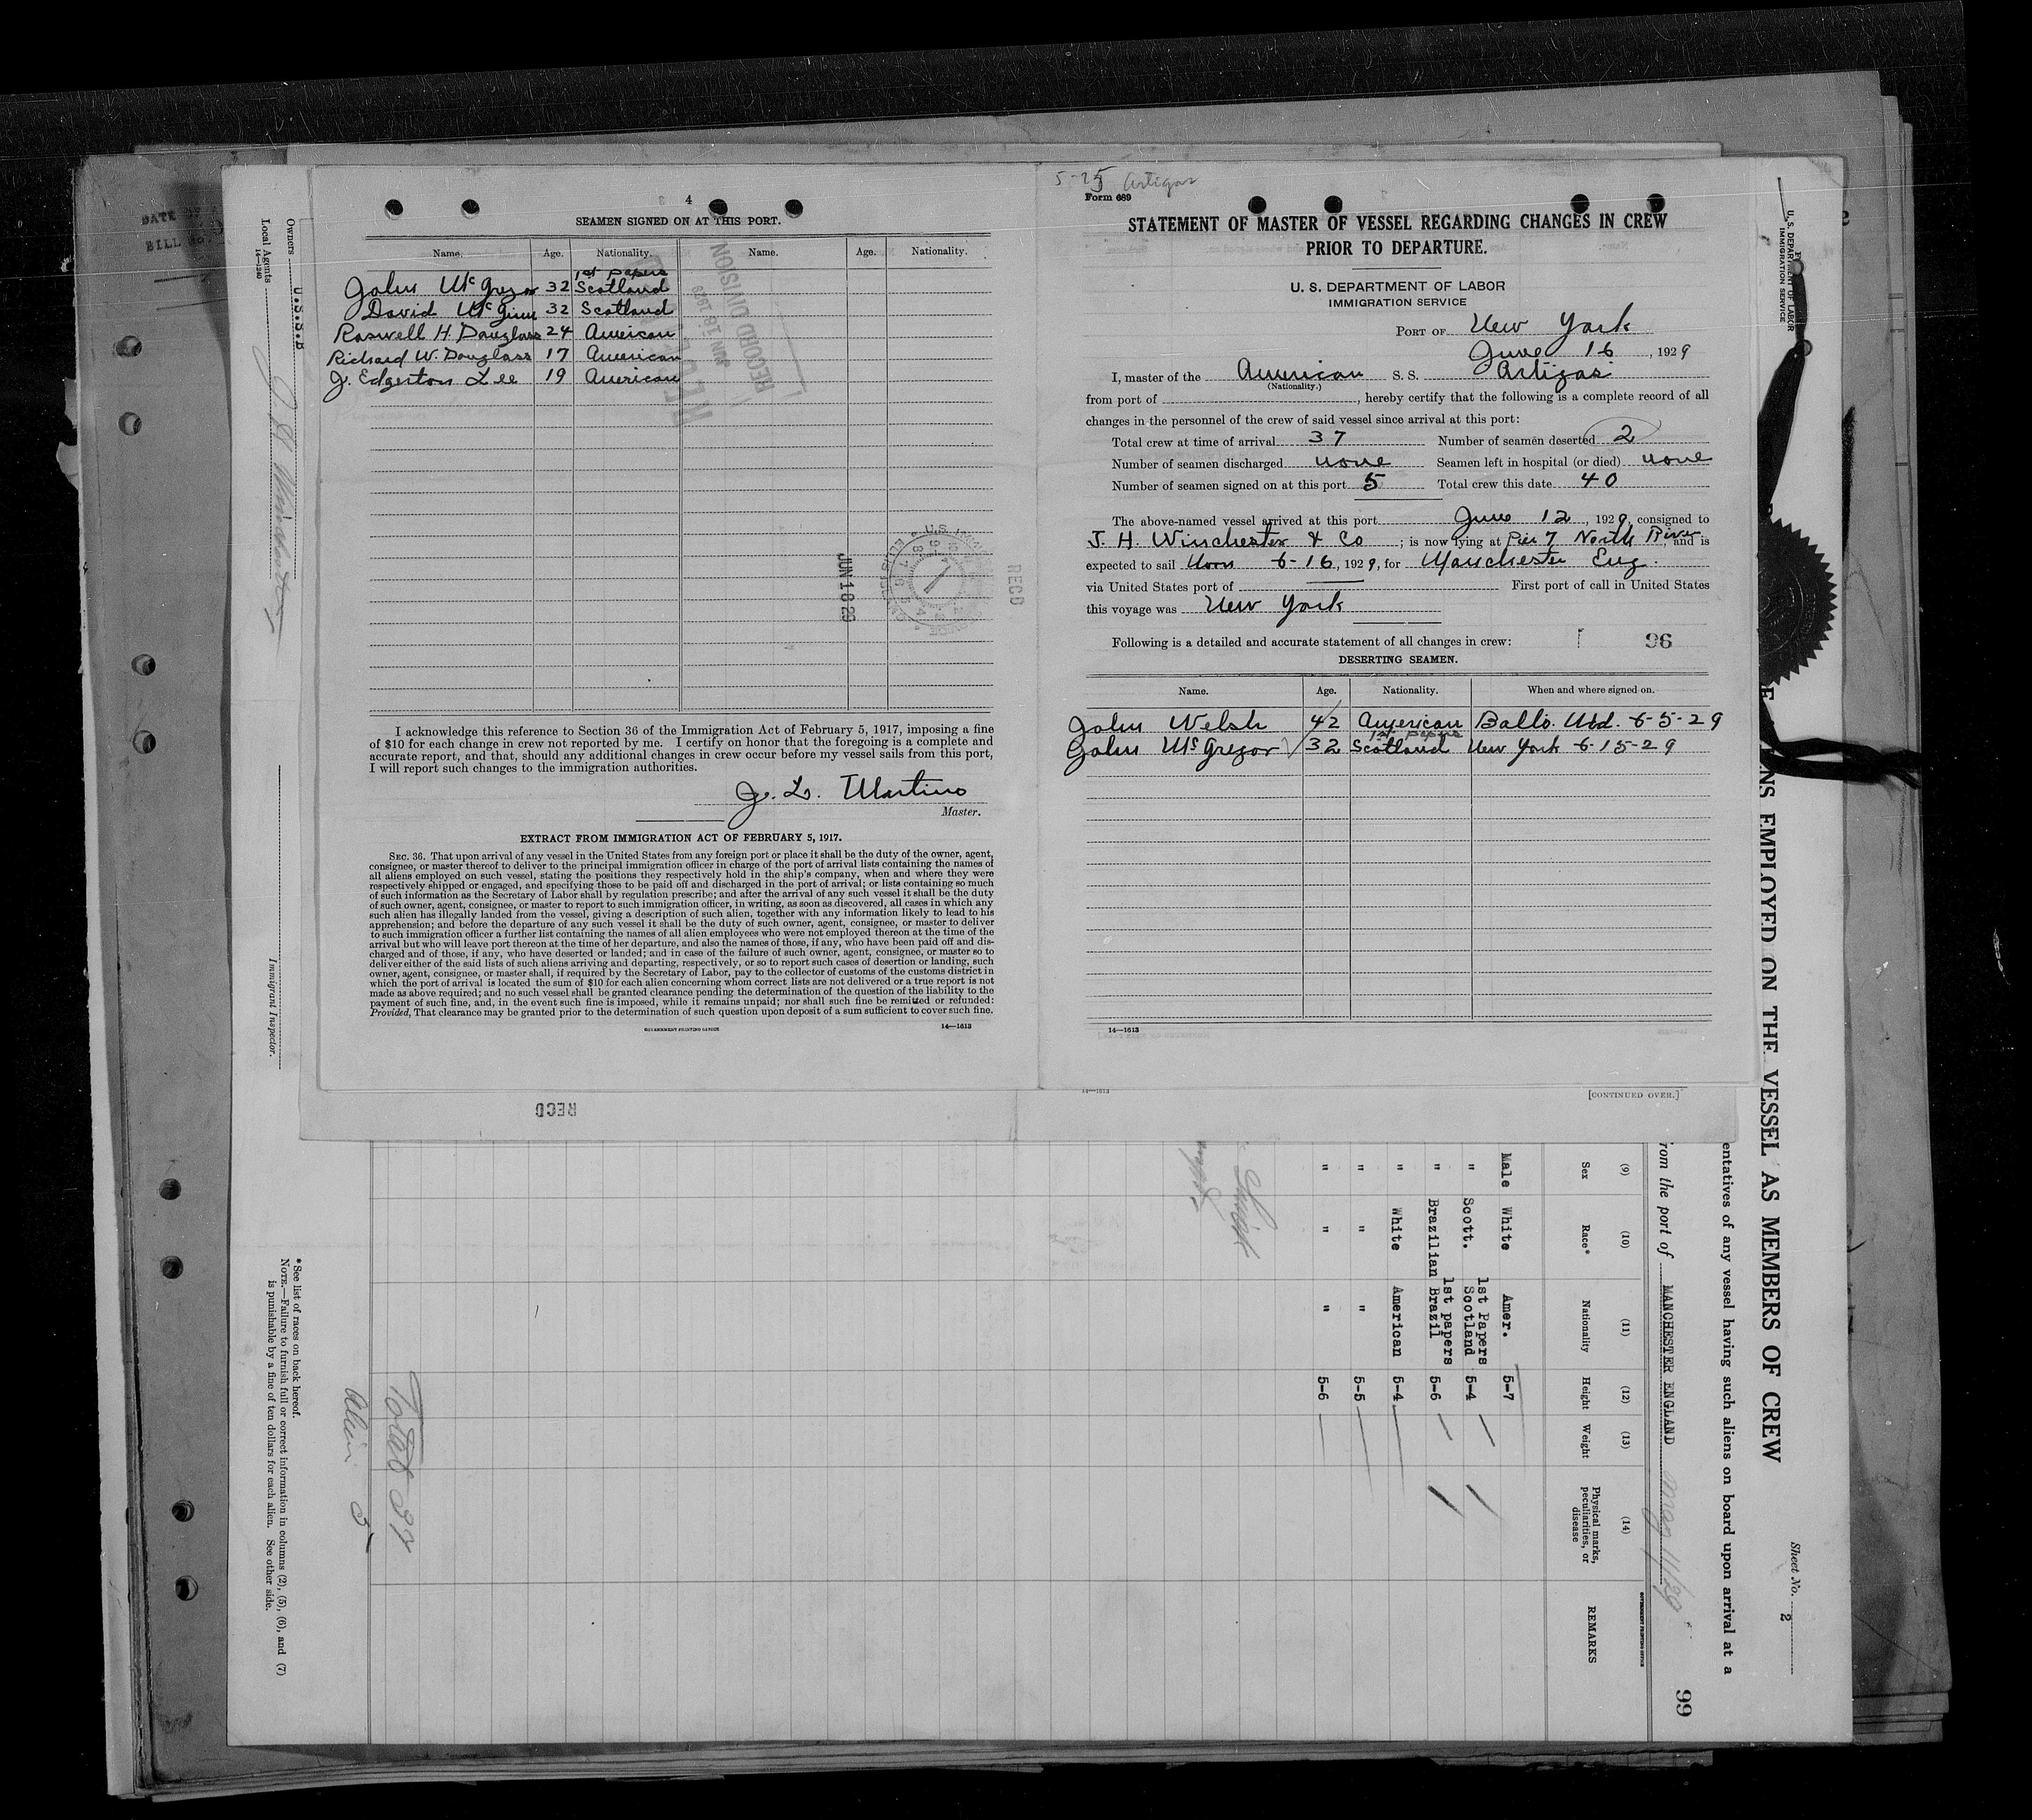 4
SEAMEN SIGNED ON AT THIS PORT.
Name. Age. Nationality. Name. Age. Nationality.
1st papers
John McGregor 32 Scotland
David McGinn 32 Scotland
Roswell H. Douglass 24 American
Richard W. Douglass 17 American
J. Edgerton Lee 19 American
RECORD DIVISION
JUN 16 1929
JUN 16 29
RECD
I acknowledge this reference to Section 36 of the Immigration Act of February 5, 1917, imposing a fine
of $10 for each change in crew not reported by me. I certify on honor that the foregoing is a complete and
accurate report, and that, should any additional changes in crew occur before my vessel sails from this port,
I will report such changes to the immigration authorities.
J. L. Martino
Master.
EXTRACT FROM IMMIGRATION ACT OF FEBRUARY 5, 1917.
SEC. 36. That upon arrival of any vessel in the United States from any foreign port or place it shall be the duty of the owner, agent,
consignee, or master thereof to deliver to the principal immigration officer in charge of the port of arrival lists containing the names of
all aliens employed on such vessel, stating the positions they respectively hold in the ship's company, when and where they were
respectively shipped or engaged, and specifying those to be paid off and discharged in the port of arrival; or lists containing so much
of such information as the Secretary of Labor shall by regulation prescribe; and after the arrival of any such vessel it shall be the duty
of such owner, agent, consignee, or master to report to such immigration officer, in writing, as soon as discovered, all cases in which any
such alien has illegally landed from the vessel, giving a description of such alien, together with any information likely to lead to his
apprehension; and before the departure of any such vessel it shall be the duty of such owner, agent, consignee, or master to deliver
to such immigration officer a further list containing the names of all alien employees who were not employed thereon at the time of the
arrival but who will leave port thereon at the time of her departure, and also the names of those, if any, who have been paid off and dis-
charged and of those, if any, who have deserted or landed; and in case of the failure of such owner, agent, consignee, or master so to
deliver either of the said lists of such aliens arriving and departing, respectively, or so to report such cases of desertion or landing, such
owner, agent, consignee, or master shall, if required by the Secretary of Labor, pay to the collector of customs of the customs district in
which the port of arrival is located the sum of $10 for each alien concerning whom correct lists are not delivered or a true report is not
made as above required; and no such vessel shall be granted clearance pending the determination of the question of the liability to the
payment of such fine, and, in the event such fine is imposed, while it remains unpaid; nor shall such fine be remitted or refunded:
Provided, That clearance may be granted prior to the determination of such question upon deposit of a sum sufficient to cover such fine.
GOVERNMENT PRINTING OFFICE 14—1613
RECD
5-25 Artigas
Form 689
STATEMENT OF MASTER OF VESSEL REGARDING CHANGES IN CREW
PRIOR TO DEPARTURE.
U. S. DEPARTMENT OF LABOR
IMMIGRATION SERVICE
PORT OF New York
June 16, 1929
I, master of the American S. S. Artigas
(Nationality.)
from port of , hereby certify that the following is a complete record of all
changes in the personnel of the crew of said vessel since arrival at this port:
Total crew at time of arrival 37 Number of seamen deserted 2
Number of seamen discharged none Seamen left in hospital (or died) none
Number of seamen signed on at this port 5 Total crew this date 40
The above-named vessel arrived at this port June 12, 1929, consigned to
J. H. Winchester & Co ; is now lying at Pier 7 North River, and is
expected to sail Noon 6-16, 1929, for Manchester Eng.
via United States port of First port of call in United States
this voyage was New York
Following is a detailed and accurate statement of all changes in crew: 96
DESERTING SEAMEN.
Name. Age. Nationality. When and where signed on.
John Welsh 42 American Balto. Md. 6-5-29
1st papers
John McGregor 32 Scotland New York 6-15-29
14—1613
14—1613
[CONTINUED OVER.]
DATE
BILL
Owners U.S.S.B
Local Agents J H Winchester
14-1240
Immigrant Inspector.
*See list of races on back hereof.
NOTE.—Failure to furnish full or correct information in columns (2), (5), (6), and (7)
is punishable by a fine of ten dollars for each alien. See other side.
U. S. DEPARTMENT OF LABOR
IMMIGRATION SERVICE
Sheet No. 2
EMPLOYED ON THE VESSEL AS MEMBERS OF CREW
entatives of any vessel having such aliens on board upon arrival at a
rom the port of MANCHESTER ENGLAND May 11/29
99
GOVERNMENT PRINTING OFFICE
(9) (10) (11) (12) (13) (14)
Sex Race* Nationality Height Weight Physical marks, peculiarities, or disease REMARKS
Male White Amer. 5-7
1st Papers
" Scott. Scotland 5-4
1st papers
" Brazilian Brazil 5-6
" White American 5-4
" " " 5-5
" " " 5-6
Total 37
Alien 5